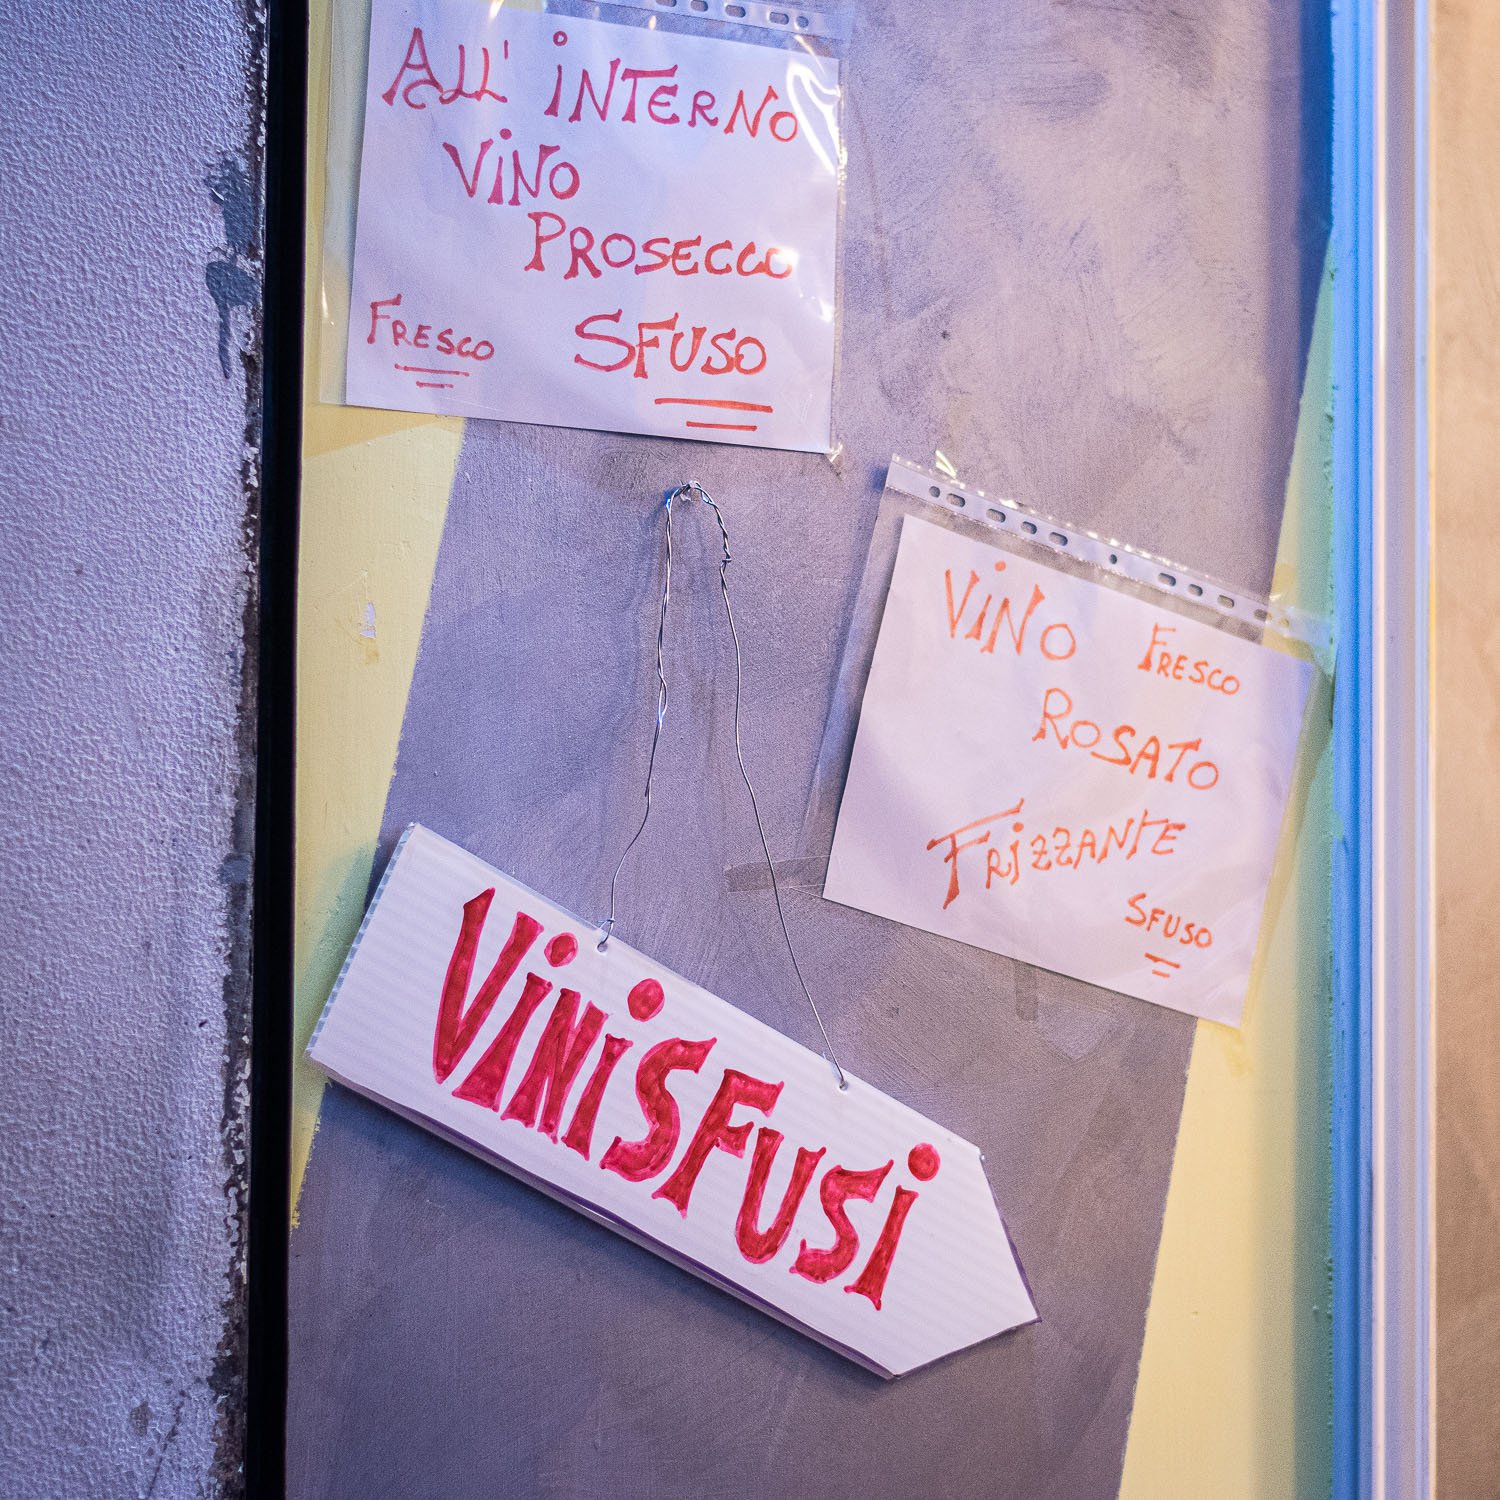 ALL' INTERNO
VINO
PROSECCO
FRESCO SFUSO
VINO FRESCO
ROSATO
FRIZZANTE
SFUSO
VINISFUSI